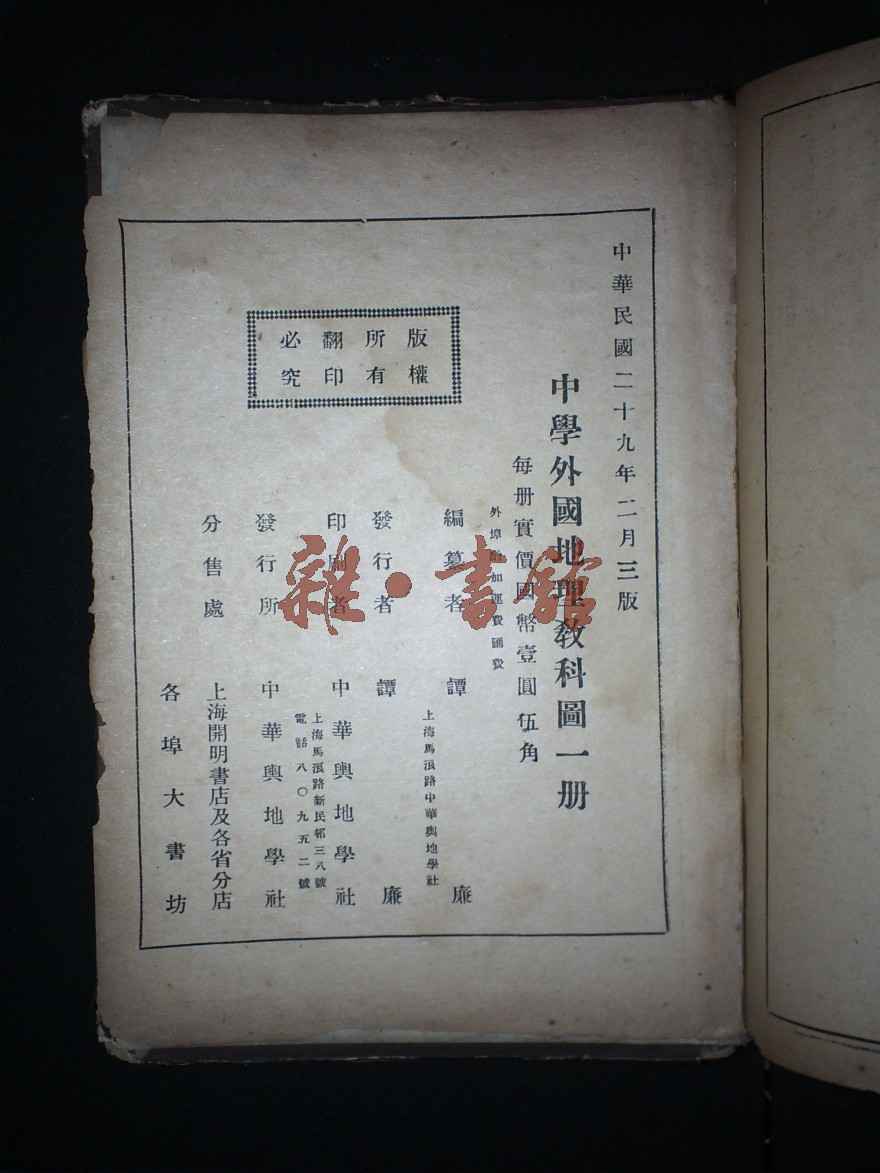 中華民國二十九年二月三版
中學外國地理教科圖一册
每册實價國幣壹圓伍角
外埠酌加運費匯費
版權
所有
翻印
必究
編纂者 譚廉
上海馬浪路中華輿地學社
發行者 譚廉
印刷者 中華輿地學社
上海馬浪路新民邨三八號
電話八〇九五二號
發行所 中華輿地學社
分售處 上海開明書店及各省分店
各埠大書坊
雜·書館